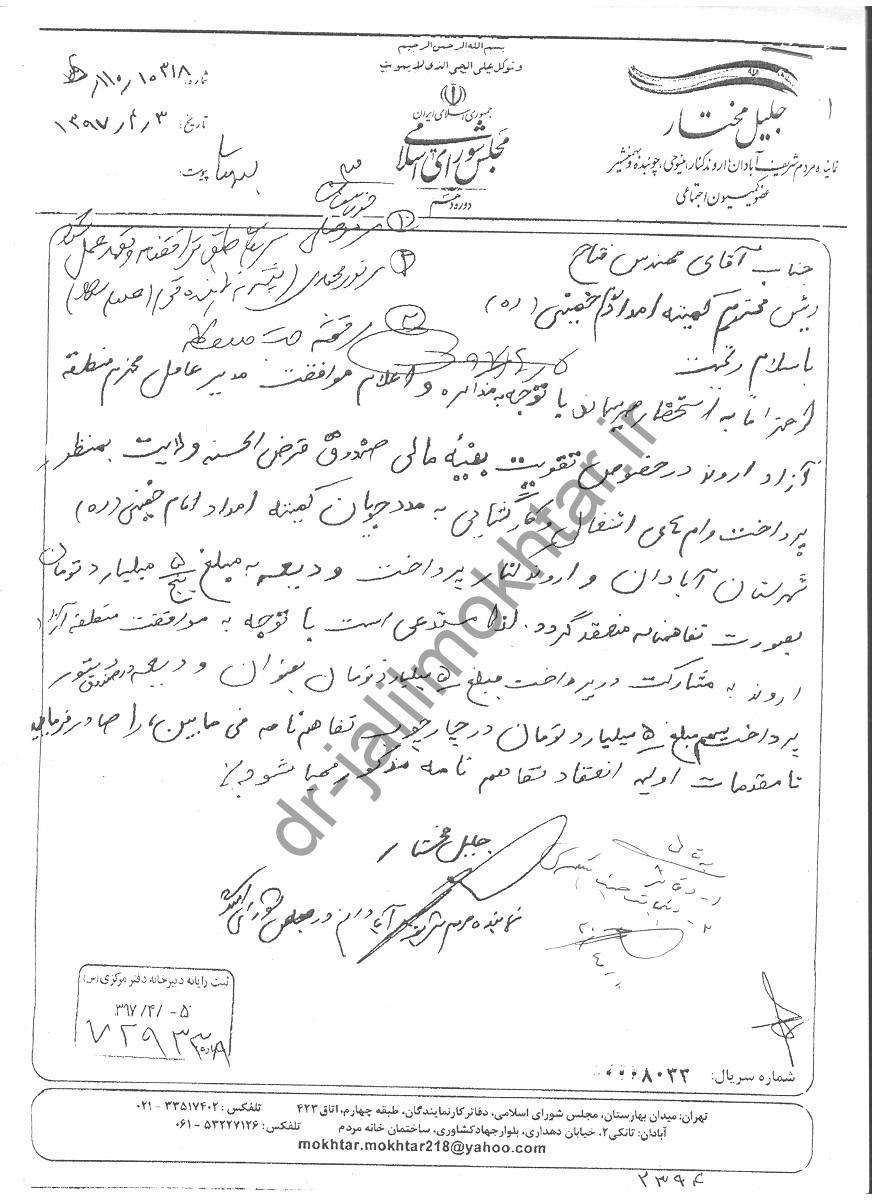 بسم الله الرحمن الرحیم
و توکل علی الحی الذی لایموت
جمهوری اسلامی ایران
مجلس شورای اسلامی
دوره دهم
شماره: ۱۱۰/۱۰۳۱۸
تاریخ: ۱۳۹۷/۴/۳
پیوست:
۱
جلیل مختار
نماینده مردم شریف آبادان، اروندکنار، مینوحی، چوئبده و بهمنشیر
عضو کمیسیون اجتماعی
جناب آقای مهندس فتاح
رئیس محترم کمیته امداد امام خمینی (ره)
با سلام و تحیت
احتراماً به استحضار میرساند با توجه به مذاکره و اعلام موافقت مدیر عامل محترم منطقه
آزاد اروند در خصوص تقویت بنیه مالی صندوق قرض الحسنه ولایت بمنظور
پرداخت وام های اشتغال و کارگشایی به مددجویان کمیته امداد امام خمینی (ره)
شهرستان آبادان و اروندکنار پرداخت ودیعه به مبلغ ۵ پنج میلیارد تومان
بصورت تفاهمنامه منعقد گردد. لذا مستدعی است با توجه به موافقت منطقه آزاد
اروند به مشارکت در پرداخت مبلغ ۵ میلیارد تومان بعنوان ودیعه در صندوق دستور
پرداخت سهم مبلغ ۵ میلیارد تومان در چارچوب تفاهم نامه فی مابین، را صادر فرمایید
تا مقدمات اولیه انعقاد تفاهم نامه مذکور مهیا شود./
جلیل مختار
نماینده مردم شریف آبادان در مجلس شورای اسلامی
dr-jalilmokhtar.ir
ثبت رایانه دبیرخانه دفتر مرکزی (س)
۳۹۷/۴/-۵
شماره سریال: ۸۰۳۲
تهران: میدان بهارستان، مجلس شورای اسلامی، دفاتر کار نمایندگان، طبقه چهارم، اتاق ۴۲۳ تلفکس: ۳۳۵۱۷۴۰۲ - ۰۲۱
آبادان: تانکی۲، خیابان دهداری، بلوار جهاد کشاورزی، ساختمان خانه مردم تلفکس: ۵۳۲۲۷۱۲۶ - ۰۶۱
mokhtar.mokhtar218@yahoo.com
۲۳۹۴